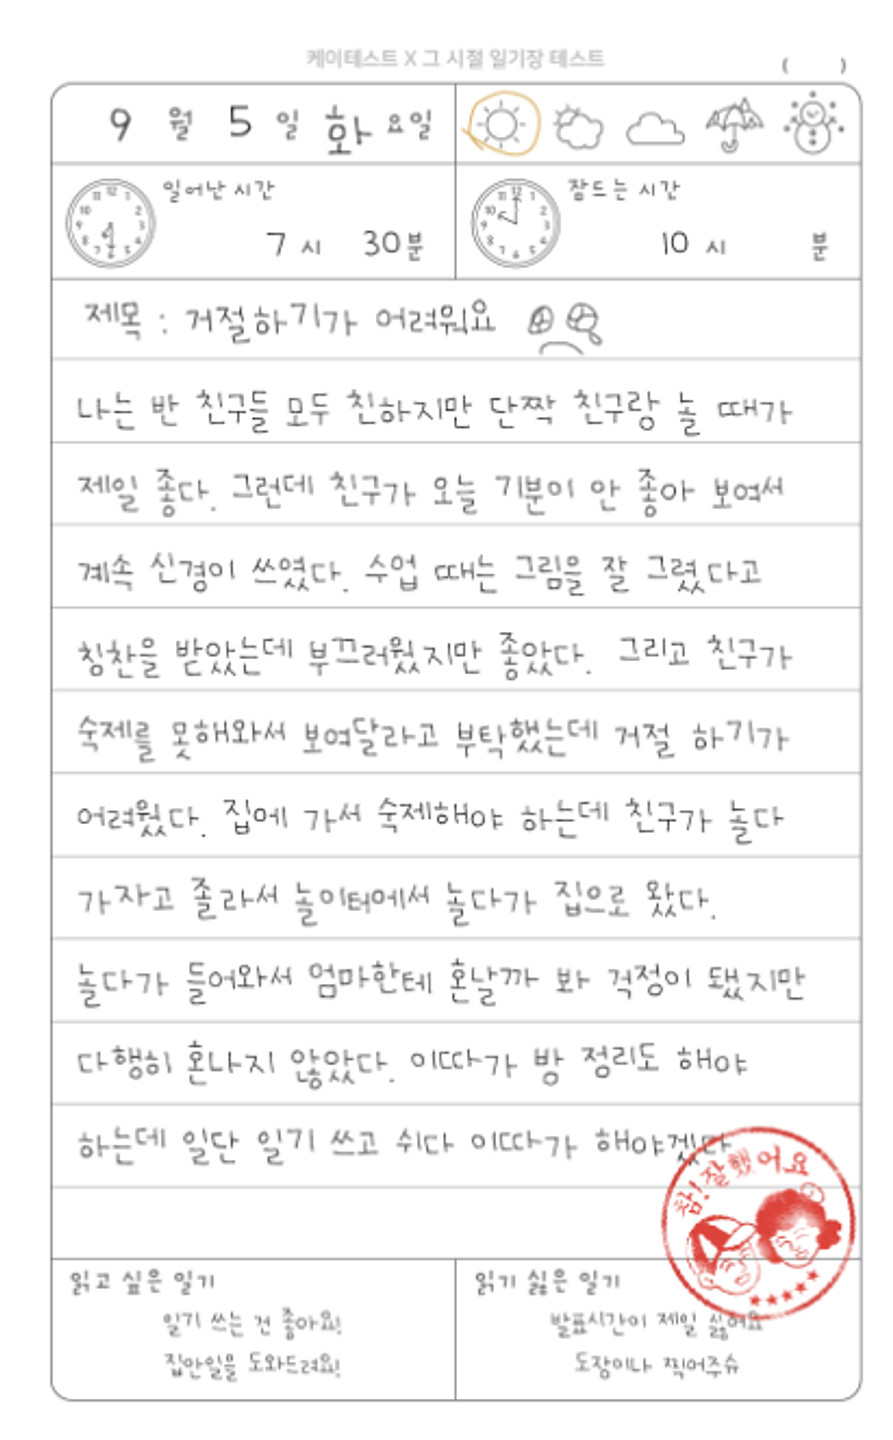 케이테스트 X 그 시절 일기장 테스트
( )
9 월 5 일 화 요일
일어난 시간
7 시 30 분
잠드는 시간
10 시 분
제목 : 거절하기가 어려워요
나는 반 친구들 모두 친하지만 단짝 친구랑 놀 때가
제일 좋다. 그런데 친구가 오늘 기분이 안 좋아 보여서
계속 신경이 쓰였다. 수업 때는 그림을 잘 그렸다고
칭찬을 받았는데 부끄러웠지만 좋았다. 그리고 친구가
숙제를 못해와서 보여달라고 부탁했는데 거절 하기가
어려웠다. 집에 가서 숙제해야 하는데 친구가 놀다
가자고 졸라서 놀이터에서 놀다가 집으로 왔다.
놀다가 들어와서 엄마한테 혼날까 봐 걱정이 됐지만
다행히 혼나지 않았다. 이따가 방 정리도 해야
하는데 일단 일기 쓰고 쉬다 이따가 해야겠다
참! 잘했어요
읽고 싶은 일기
일기 쓰는 건 좋아요!
집안일을 도와드려요!
읽기 싫은 일기
발표시간이 제일 싫어요
도장이나 찍어주슈